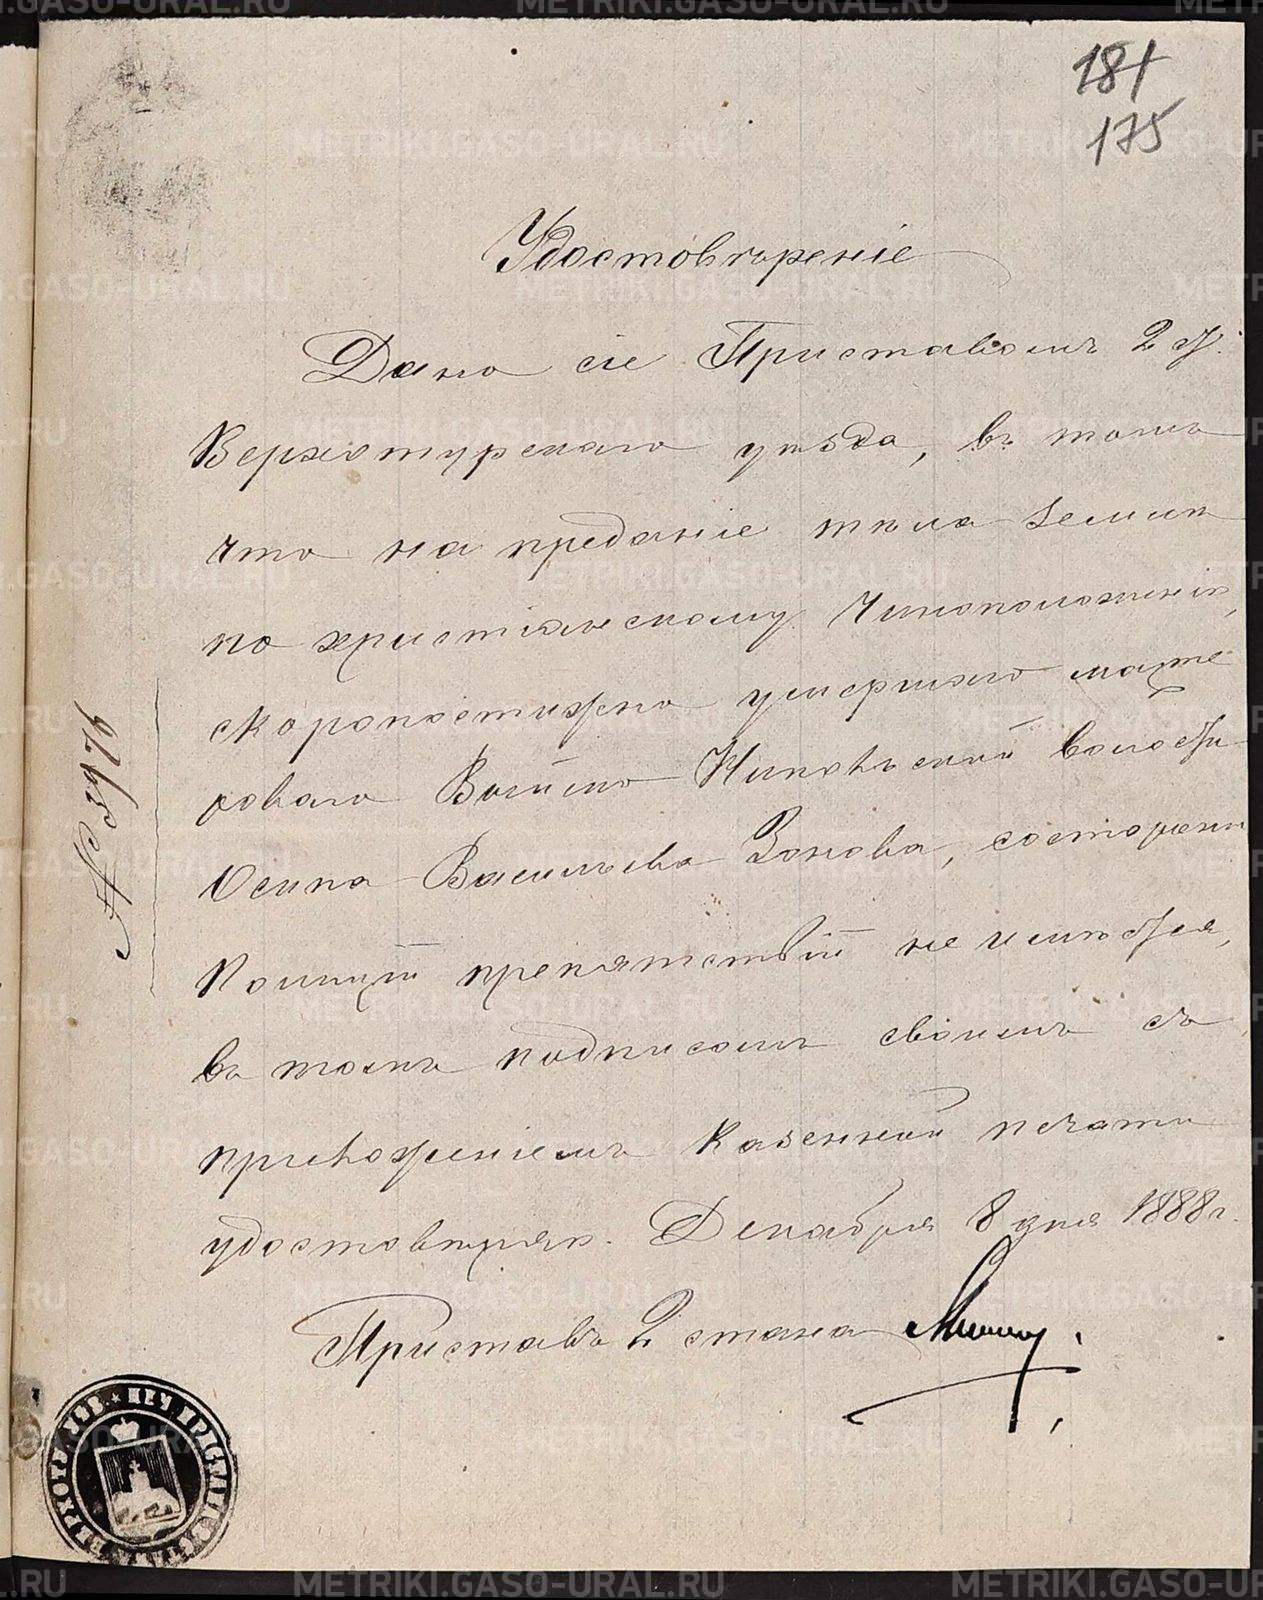 181
175
Удостовѣреніе
Дано сіе Приставомъ 2 У.
Верхотурскаго уѣзда, въ томъ
что на преданіе тѣла землѣ
по христіанскому чиноположенію,
скоропостижно умершаго масте
роваго Николо
Осипа Васильева Зонова, со стороны
Полиціи препятствій не имѣется,
въ томъ подписомъ своимъ съ
приложеніемъ казенной печати
удостовѣряю. Декабря 8 дня 1888 г.
Приставъ 2 стана
№ 3976